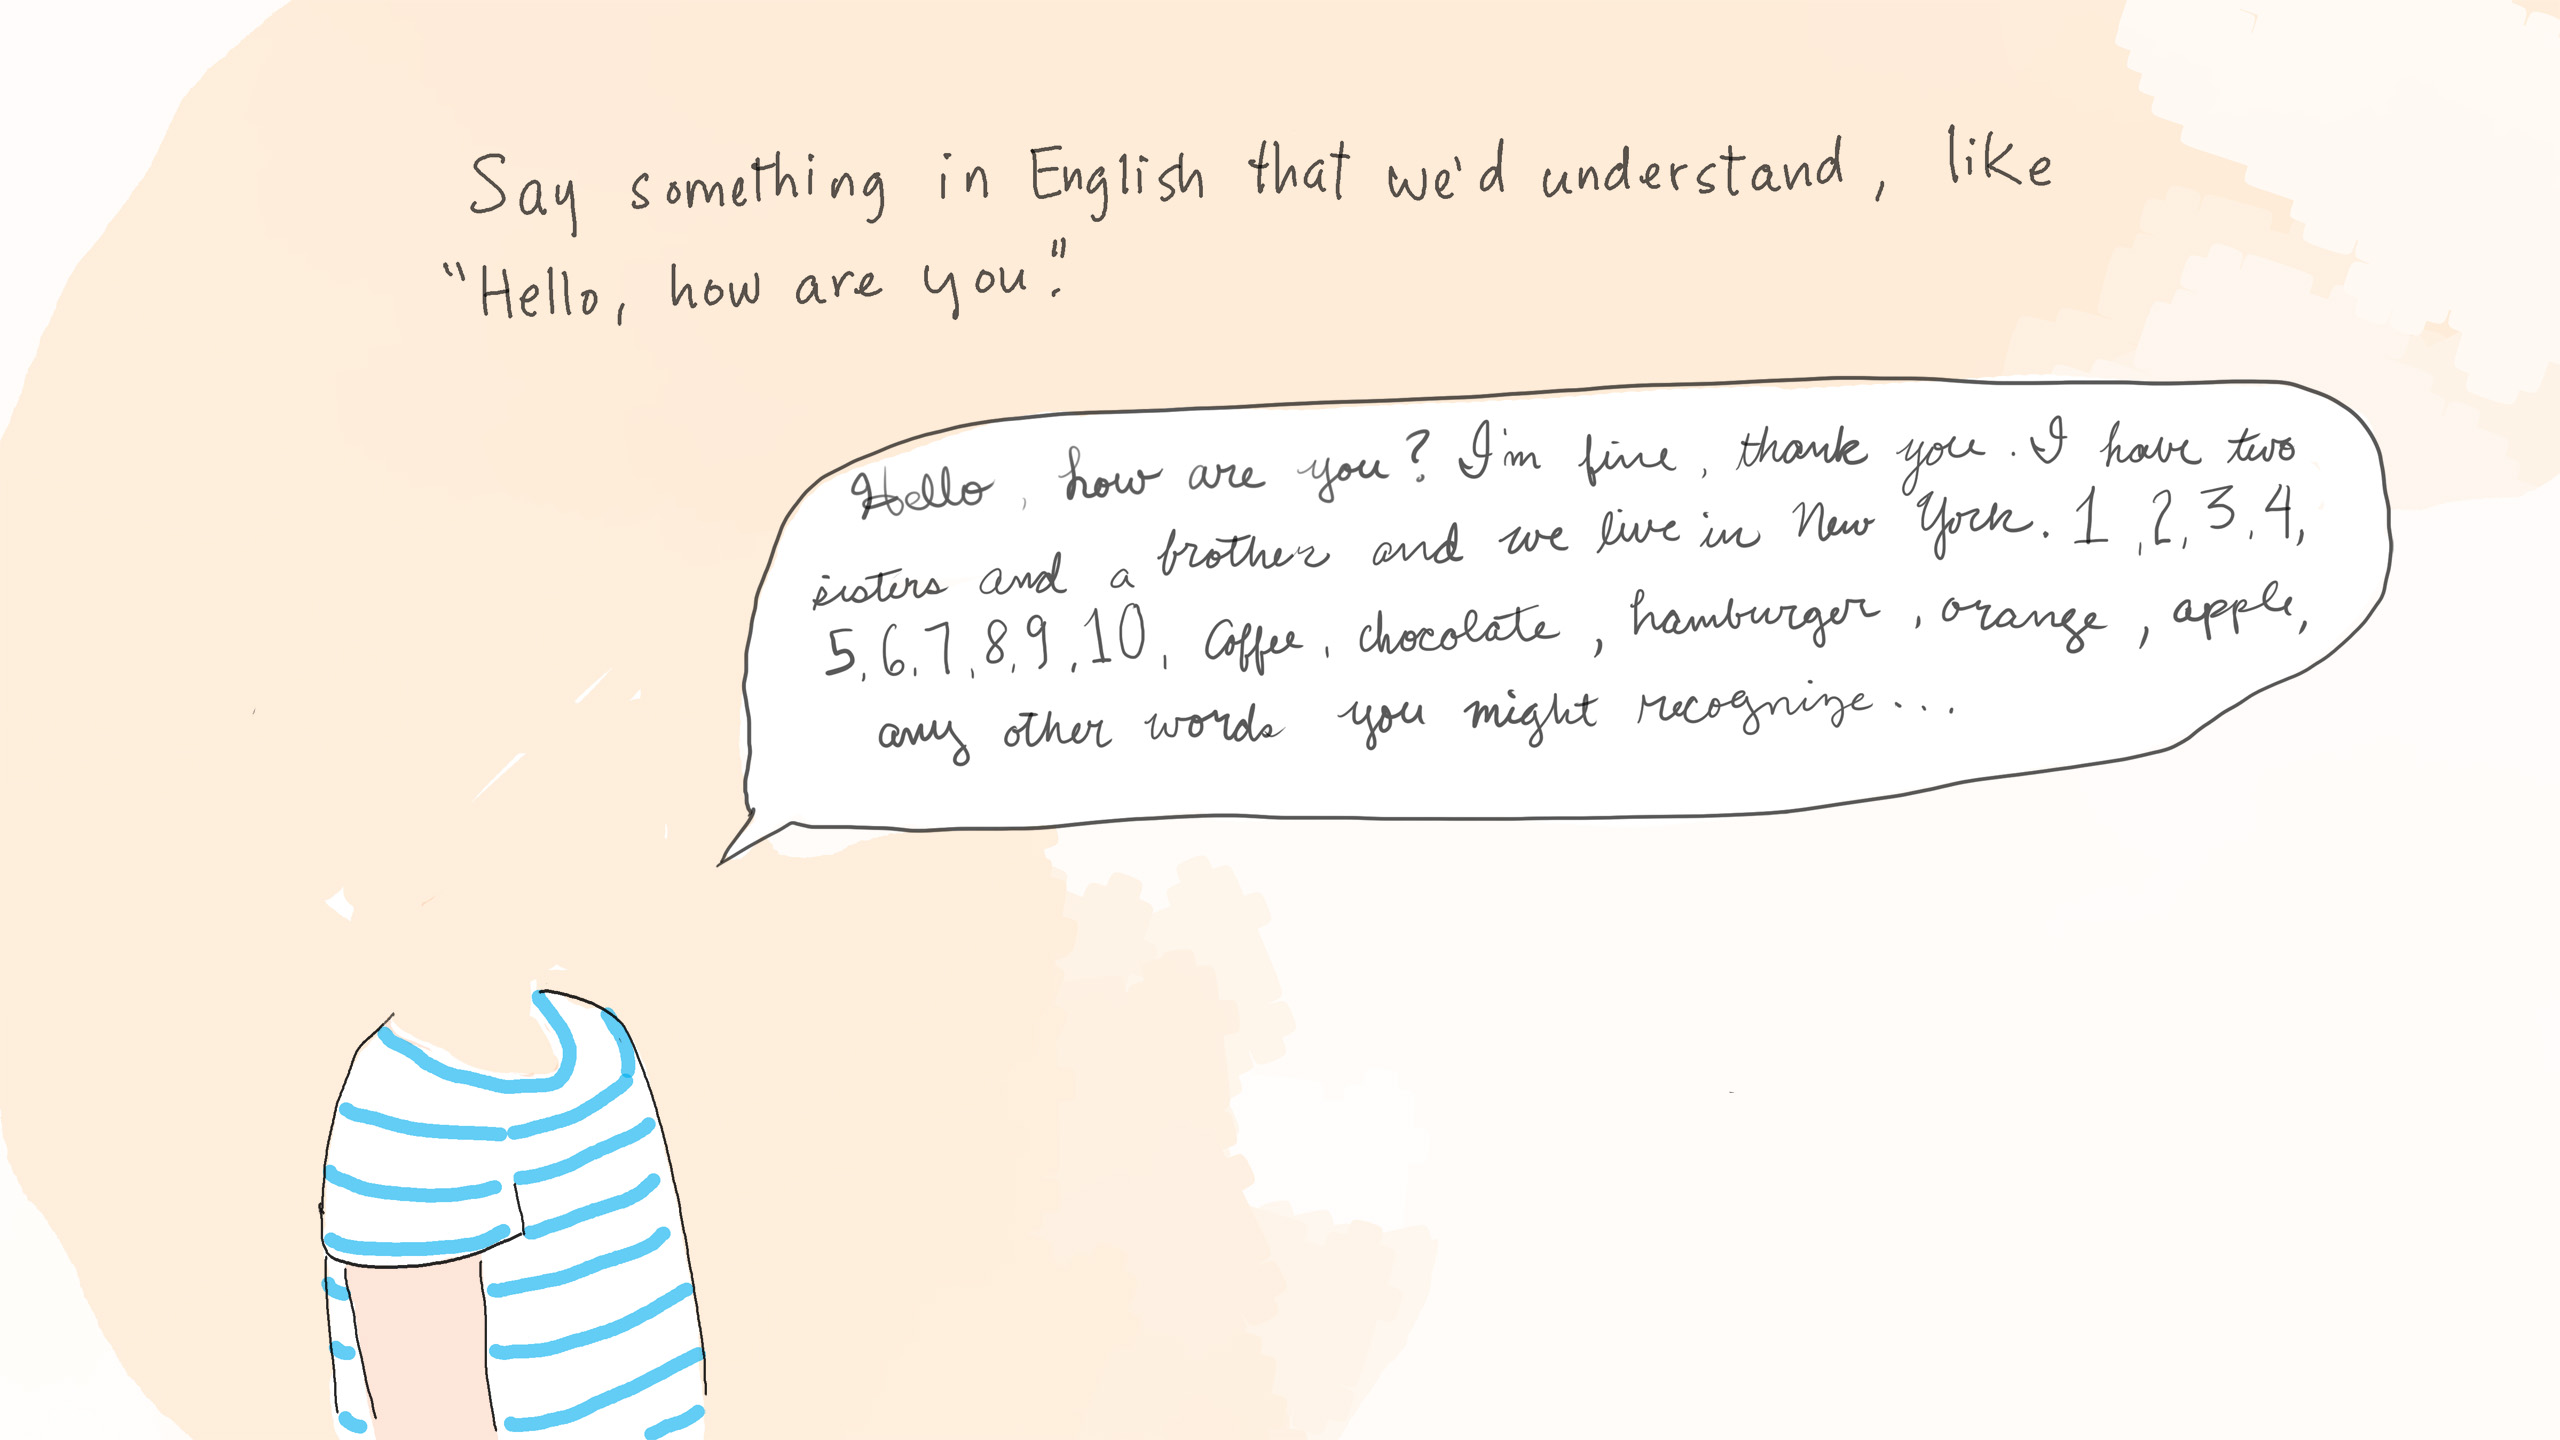 Say something in English that we'd understand, like
"Hello, how are you."
Hello, how are you? I'm fine, thank you. I have two
sisters and a brother and we live in New York. 1, 2, 3, 4,
5, 6, 7, 8, 9, 10, Coffee, chocolate, hamburger, orange, apple,
any other words you might recognize...